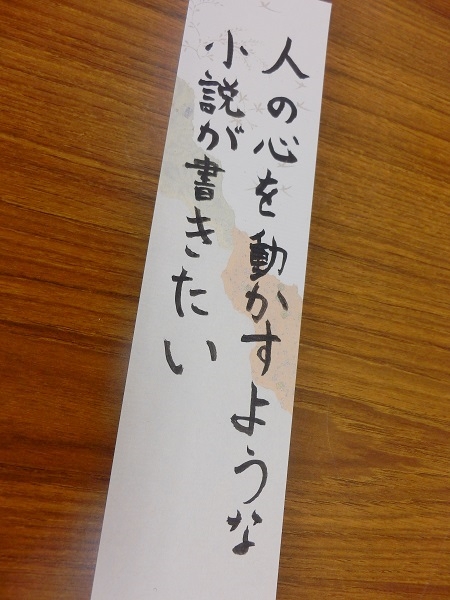 人の心を動かすような
小説が書きたい